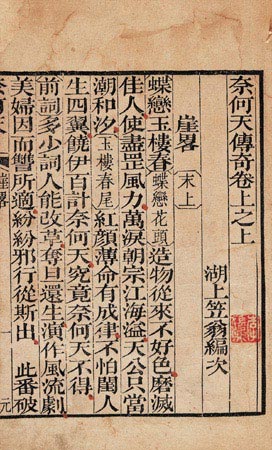 奈何天傳奇卷上之上
湖上笠翁編次
崖畧〔末上〕
蝶戀玉樓春〔蝶戀花頭〕造物從來不好色磨滅
佳人使盡罡風力萬淚朝宗江海溢天公只當
潮和汐〔玉樓春尾〕紅顏薄命有成律不怕閨人
生四翼饒伊百計奈何天究竟奈何天不得
前詞多少詞人能改草奪旦還生演作風流劇
美婦因而讐所適紛紛邪行從斯出 此番破